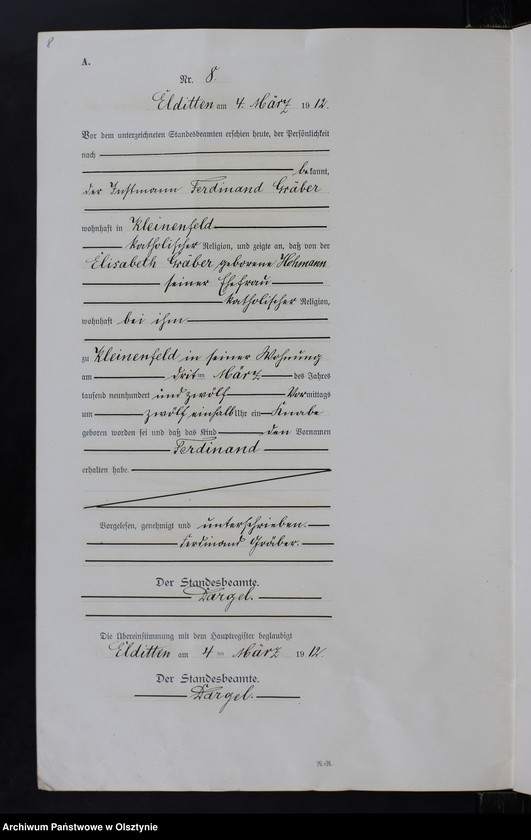 8
A.
Nr. 8.
Elditten am 4. März 1912.
Vor dem unterzeichneten Standesbeamten erschien heute, der Persönlichkeit
nach
bekannt,
der Instmann Ferdinand Gräber
wohnhaft in Kleinenfeld
katholischer Religion, und zeigte an, daß von der
Elisabeth Gräber geborene Hohmann
seiner Ehefrau
katholischer Religion,
wohnhaft bei ihm
zu Kleinenfeld in seiner Wohnung
am dritten März des Jahres
tausend neunhundert und zwölf Vormittags
um zwölf einhalb Uhr ein Knabe
geboren worden sei und daß das Kind den Vornamen
Ferdinand
erhalten habe.
Vorgelesen, genehmigt und unterschrieben.
Ferdinand Gräber.
Der Standesbeamte.
Dargel.
Die Übereinstimmung mit dem Hauptregister beglaubigt
Elditten am 4ten März 1912.
Der Standesbeamte.
Dargel.
Archiwum Państwowe w Olsztynie